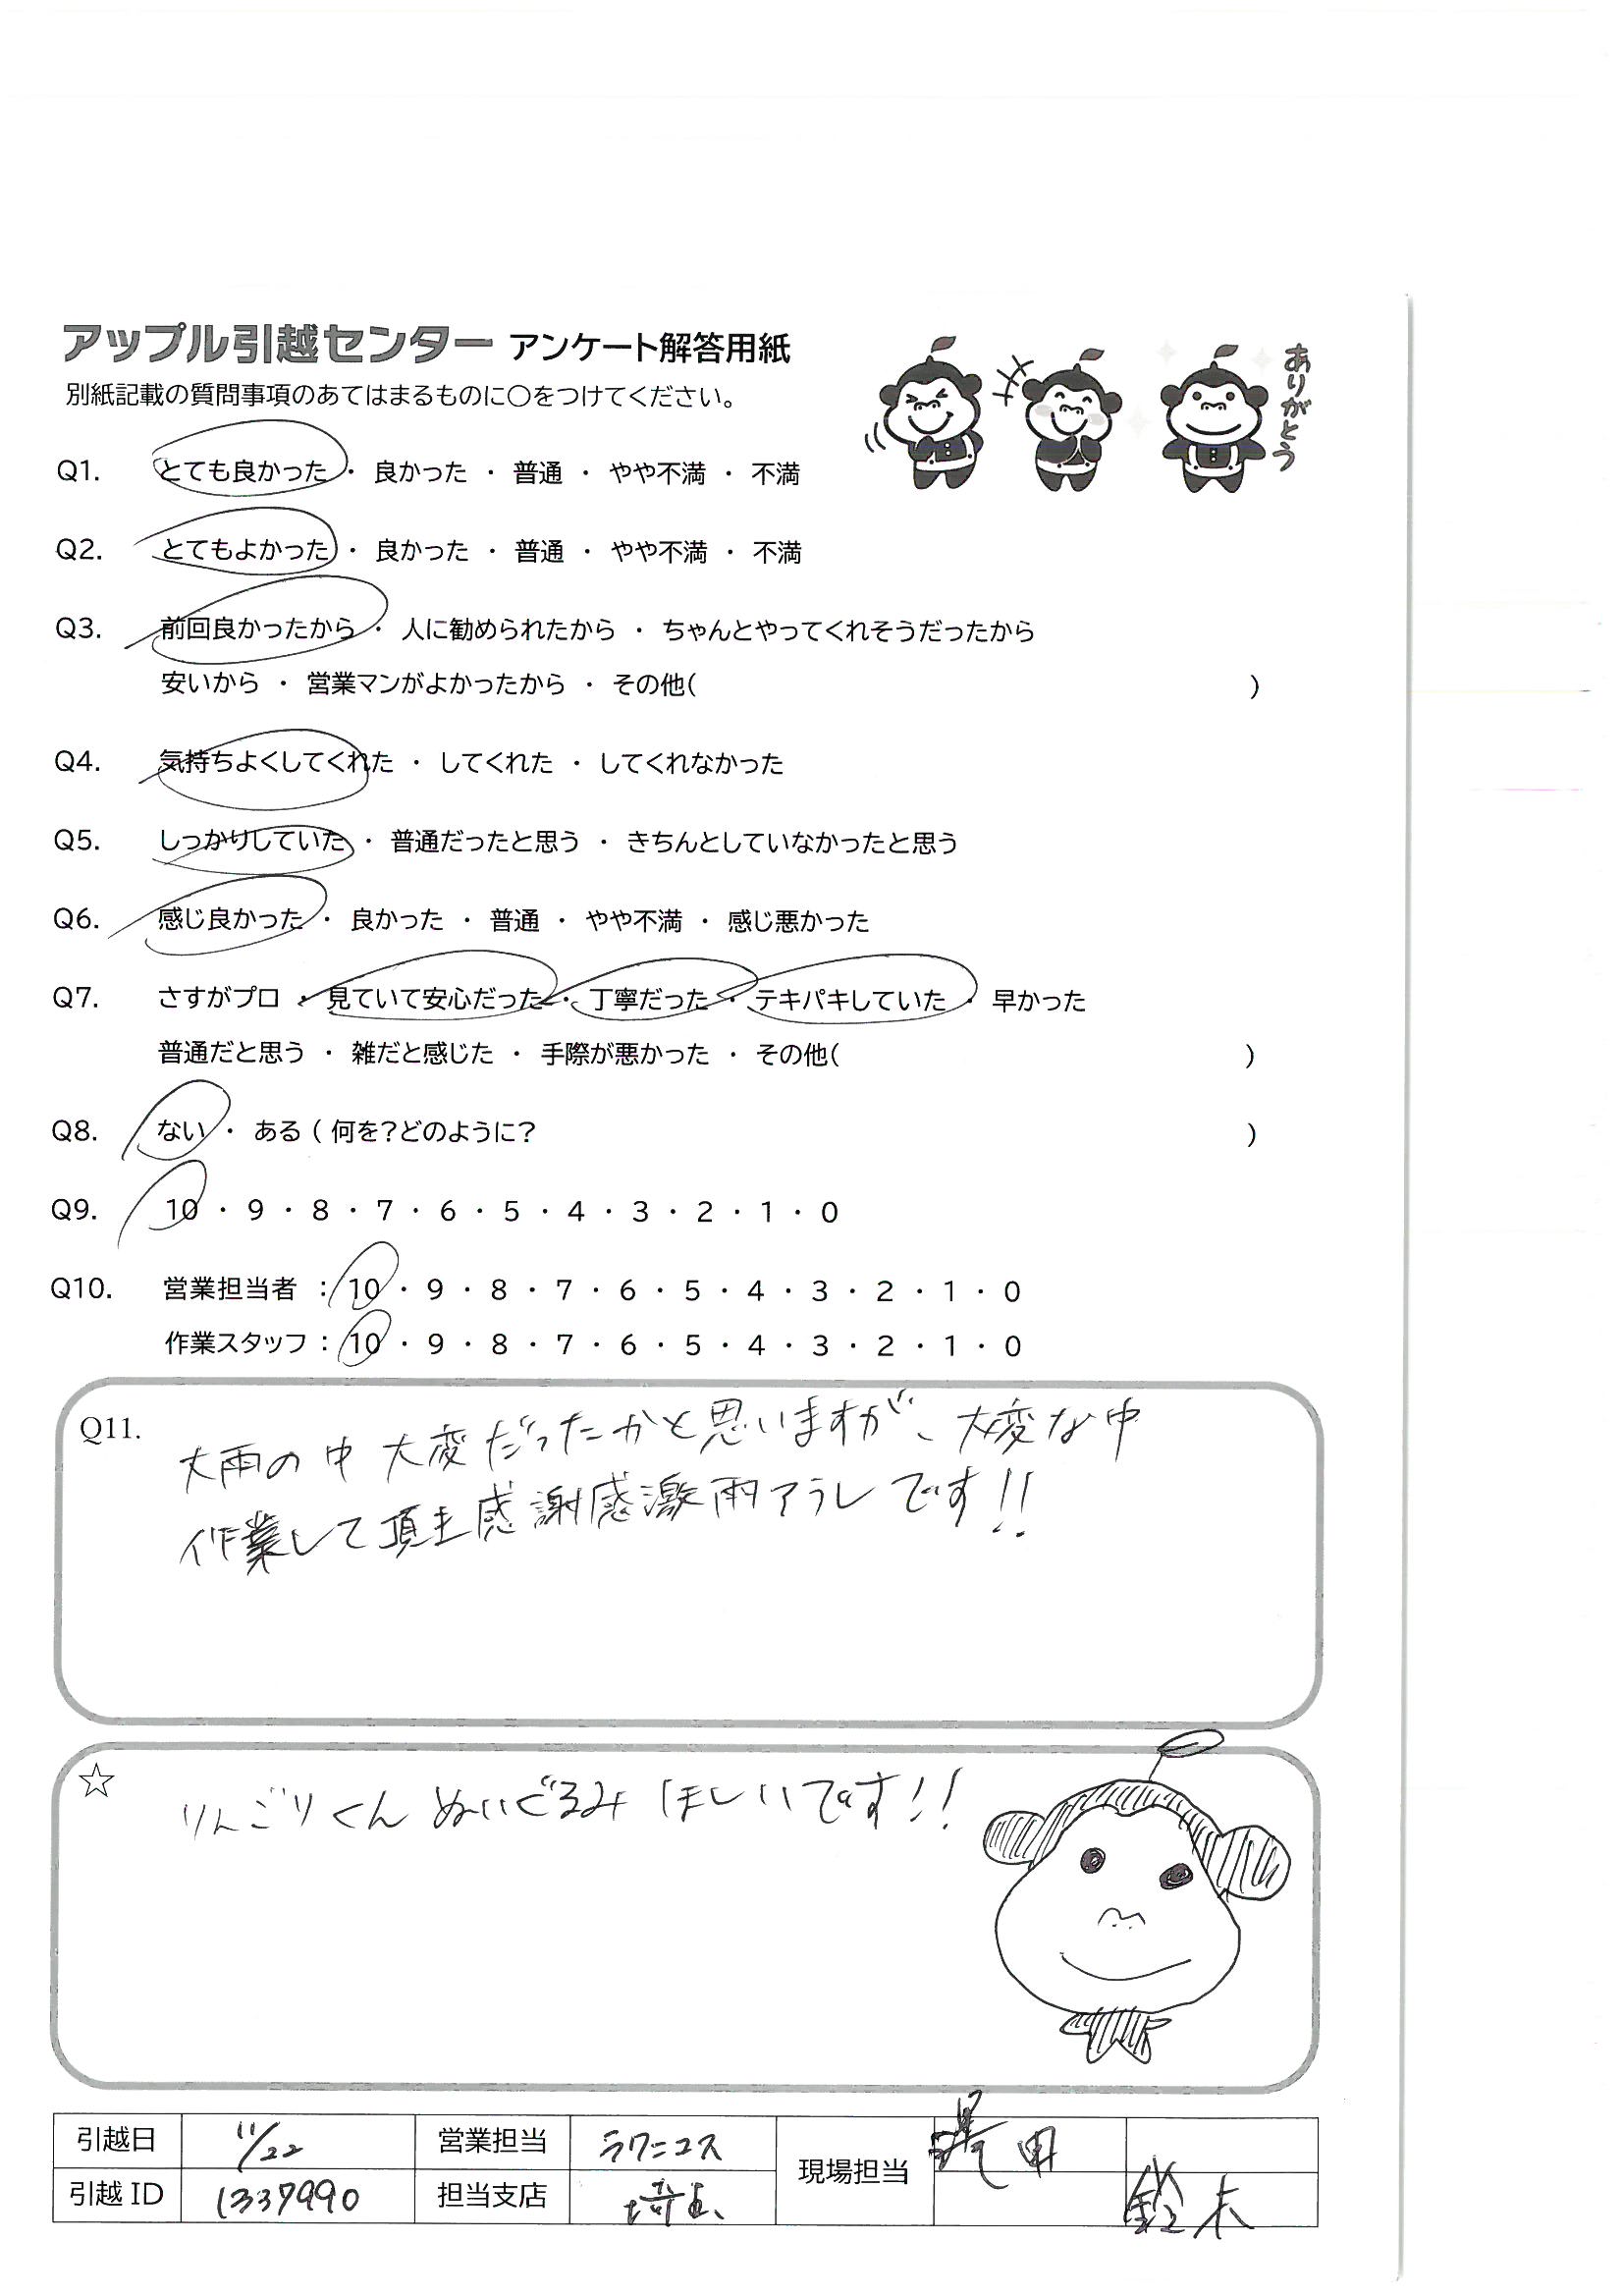 アップル引越センター アンケート解答用紙
別紙記載の質問事項のあてはまるものに〇をつけてください。
ありがとう
Q1. とても良かった ・ 良かった ・ 普通 ・ やや不満 ・ 不満
Q2. とてもよかった ・ 良かった ・ 普通 ・ やや不満 ・ 不満
Q3. 前回良かったから ・ 人に勧められたから ・ ちゃんとやってくれそうだったから
安いから ・ 営業マンがよかったから ・ その他( )
Q4. 気持ちよくしてくれた ・ してくれた ・ してくれなかった
Q5. しっかりしていた ・ 普通だったと思う ・ きちんとしていなかったと思う
Q6. 感じ良かった ・ 良かった ・ 普通 ・ やや不満 ・ 感じ悪かった
Q7. さすがプロ ・ 見ていて安心だった ・ 丁寧だった ・ テキパキしていた ・ 早かった
普通だと思う ・ 雑だと感じた ・ 手際が悪かった ・ その他( )
Q8. ない ・ ある ( 何を?どのように? )
Q9. 10 ・ 9 ・ 8 ・ 7 ・ 6 ・ 5 ・ 4 ・ 3 ・ 2 ・ 1 ・ 0
Q10. 営業担当者 : 10 ・ 9 ・ 8 ・ 7 ・ 6 ・ 5 ・ 4 ・ 3 ・ 2 ・ 1 ・ 0
作業スタッフ : 10 ・ 9 ・ 8 ・ 7 ・ 6 ・ 5 ・ 4 ・ 3 ・ 2 ・ 1 ・ 0
Q11. 大雨の中 大変だったかと思いますが、大変な中
作業して頂き感謝感激雨アラレです!!
☆ りんごりくん ぬいぐるみ ほしいです!!
引越日 11/22 営業担当 ラワニコス 現場担当 田
引越ID 1337990 担当支店 埼玉 鈴木